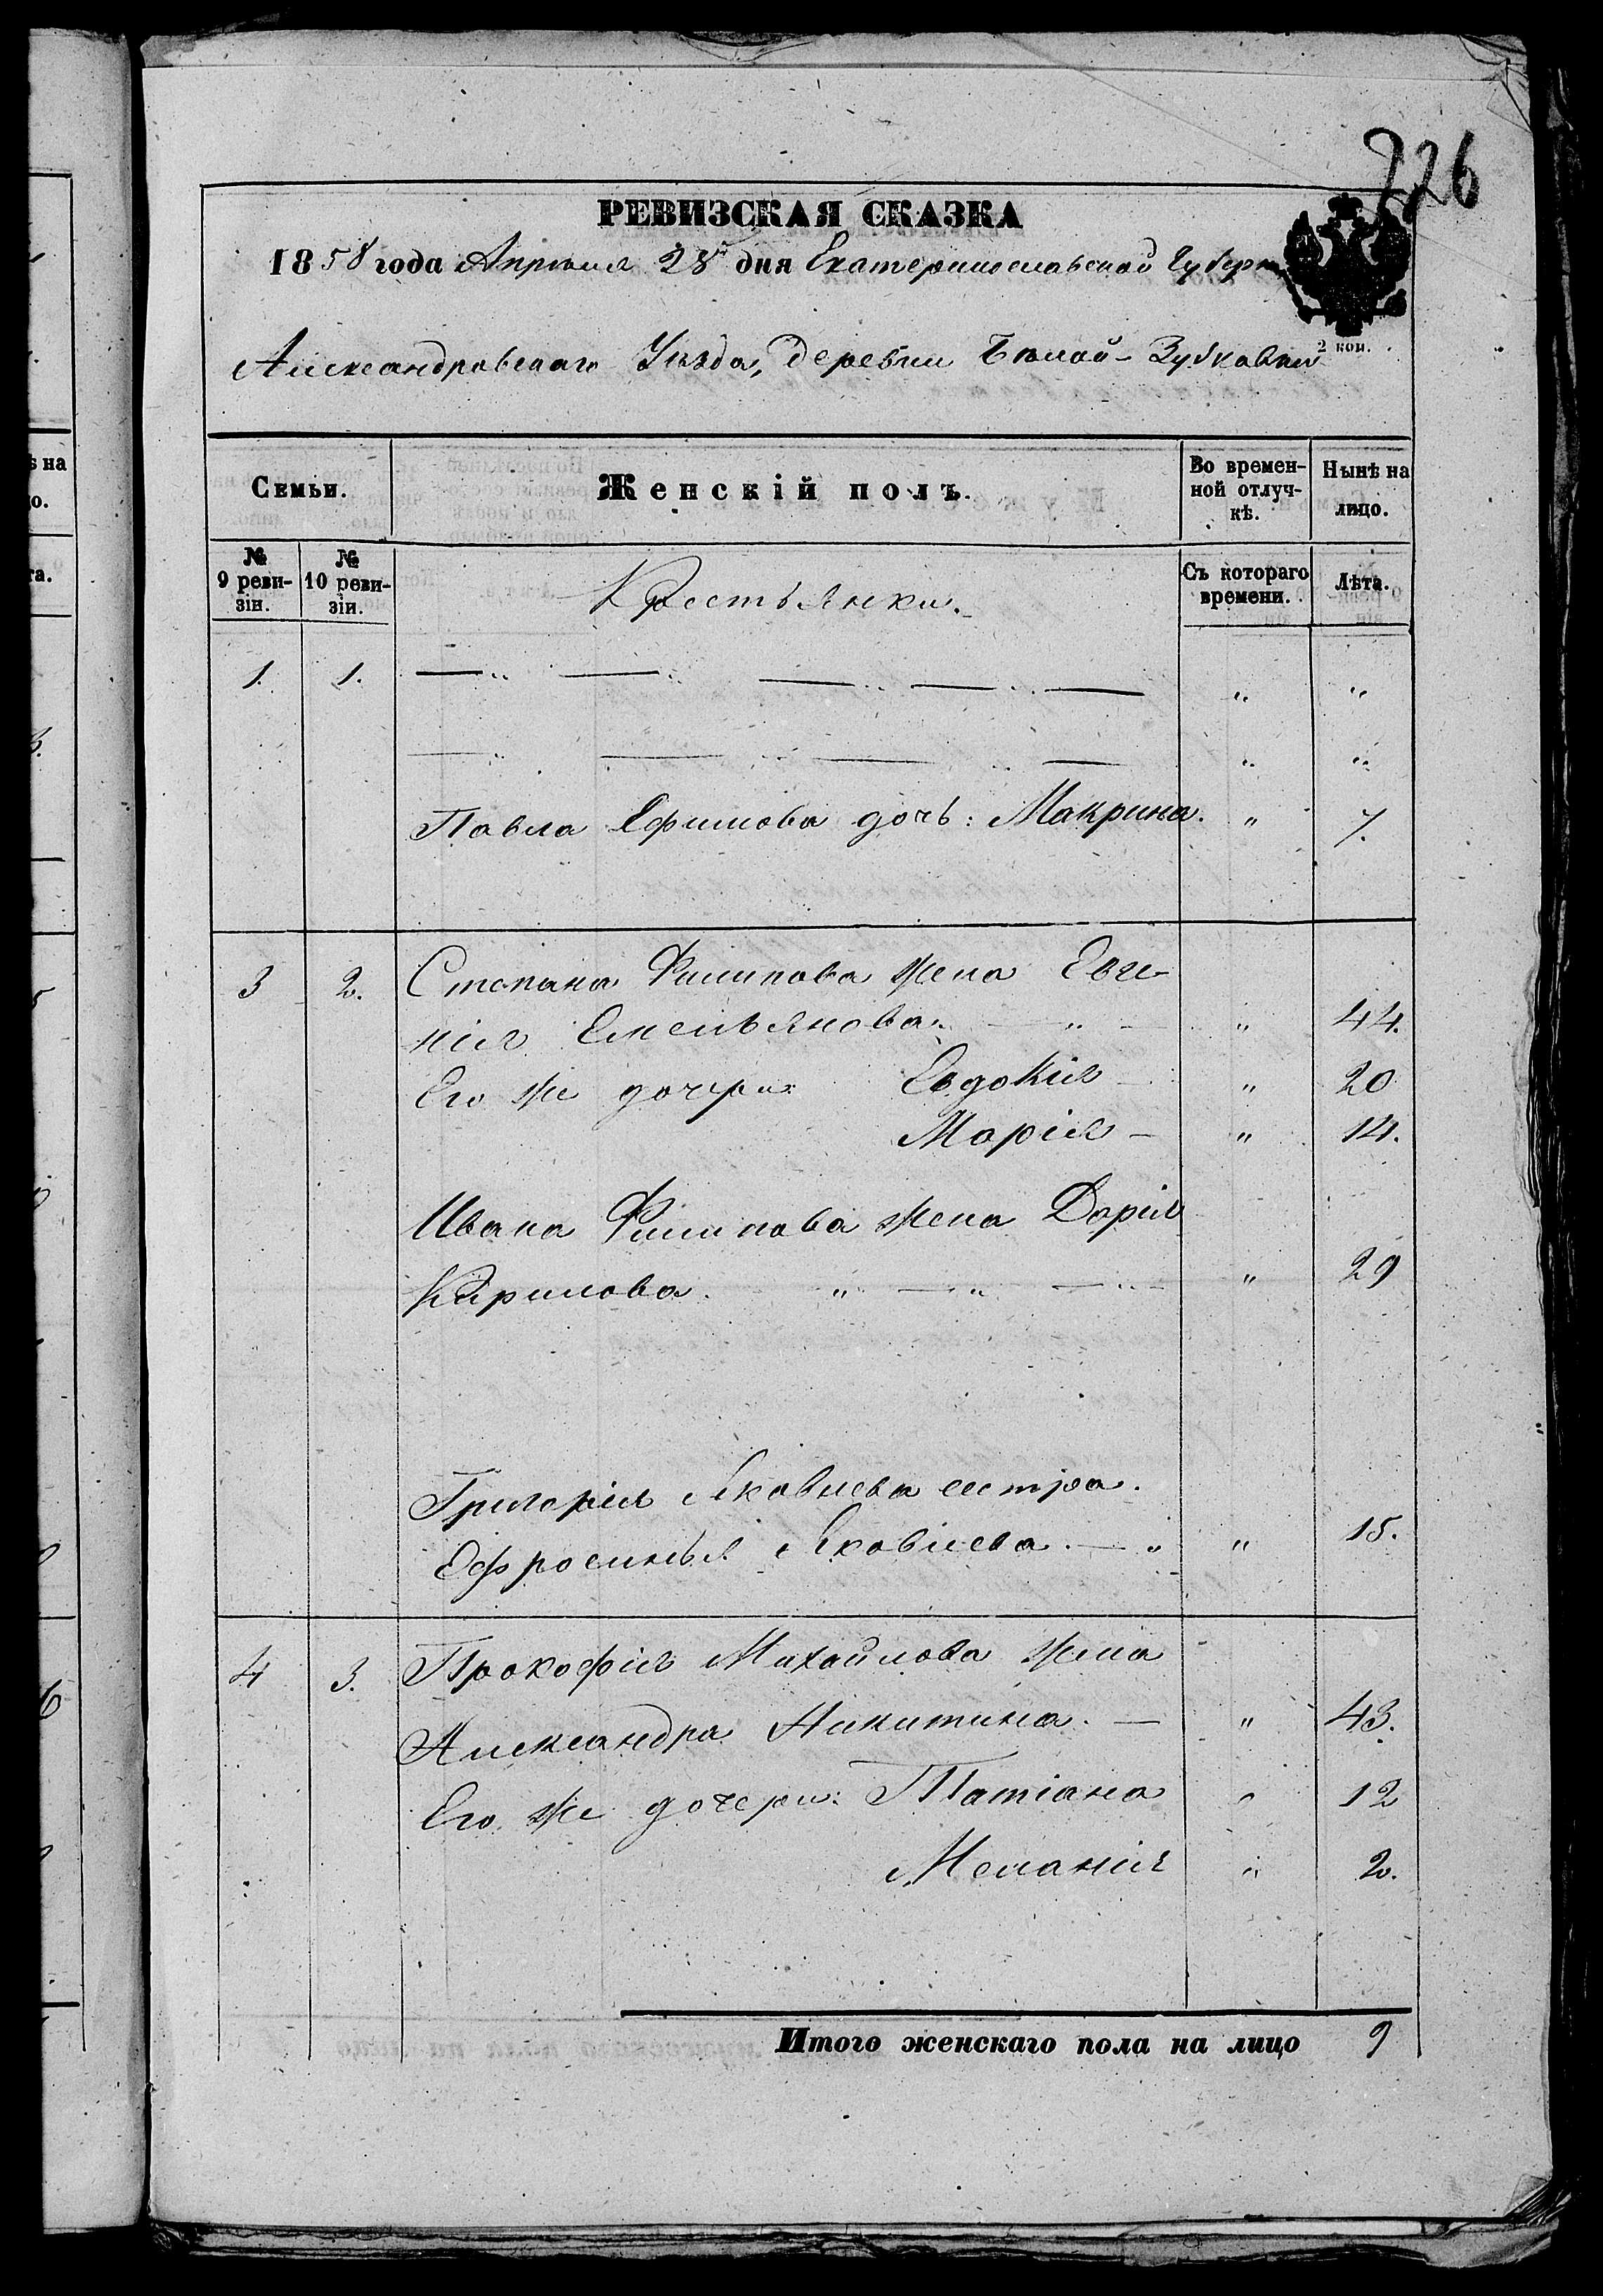 226
РЕВИЗСКАЯ СКАЗКА
1858 года Апрѣля 28 дня Екатеринославской Губерніи
2 коп.
Александровскаго Уѣзда, деревни Бѣлой-Зубковки
Семьи.
Женскій полъ.
Во времен-
ной отлуч-
кѣ.
Нынѣ на
лицо.
№
9 реви-
зіи.
№
10 реви-
зіи.
Крестьянки.
Съ котораго
времени.
Лѣта.
1. 1. — „ — „ — „ — „ — „ „
— „ — „ — „ — „ „
Павла Ефимова дочь: Макрина. „ 7.
3 2. Степана Филипова жена Евге-
нія Емельянова. — „ — „ 44.
Его же дочери: Евдокія — „ 20
Марія — „ 14.
Ивана Филипова жена Дарія
Кирилова. „ — „ — „ — „ 29
Григорія Яковлева сестра.
Ефросинья Яковлева. — „ „ 15.
4 3. Прокофія Михайлова жена
Александра Никитина. — „ 43.
Его же дочери: Татіана „ 12
Меланія „ 2.
Итого женскаго пола на лицо 9